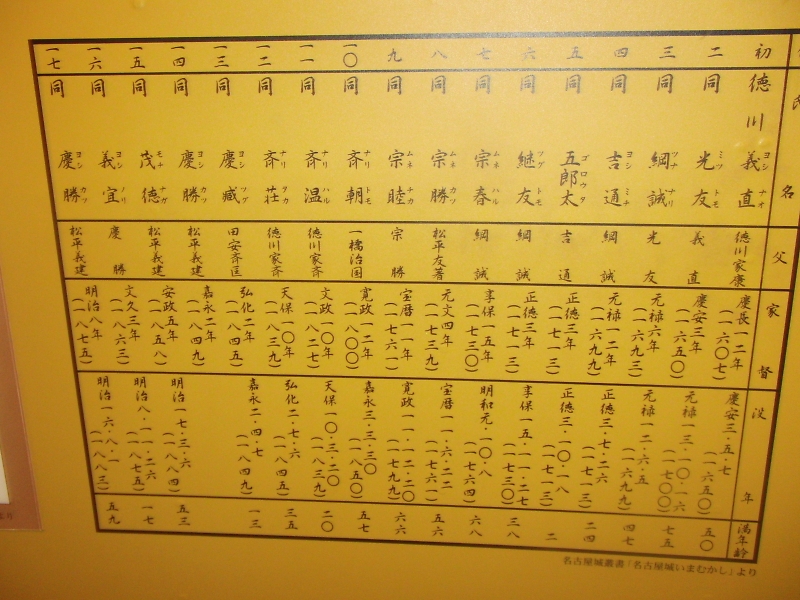 氏名 父 家督 没年 満年齢
初 徳川義直 ヨシナオ 徳川家康 慶長一二年(一六〇七) 慶安三・五・七(一六五〇) 五〇
二 同 光友 ミツトモ 義直 慶安三年(一六五〇) 元禄一三・一〇・一六(一七〇〇) 七五
三 同 綱誠 ツナナリ 光友 元禄六年(一六九三) 元禄一二・六・五(一六九九) 四七
四 同 吉通 綱誠 元禄一二年(一六九九) 正徳三・七・二六(一七一三) 二四
五 同 五郎太 ゴロウタ 吉通 正徳三年(一七一三) 正徳三・一〇・一八(一七一三) 二
六 同 継友 ツグトモ 綱誠 正徳三年(一七一三) 享保一五・一一・二七(一七三〇) 三八
七 同 宗春 ムネハル 綱誠 享保一五年(一七三〇) 明和元・一〇・八(一七六四) 六八
八 同 宗勝 ムネカツ 松平友著 元文四年(一七三九) 宝暦一一・六・二二(一七六一) 五六
九 同 宗睦 宗勝 宝暦一一年(一七六一) 寛政一一・一二・二〇(一七九九) 六六
一〇 同 斉朝 ナリトモ 一橋治国 寛政一二年(一八〇〇) 嘉永三・三・三〇(一八五〇) 五七
一一 同 斉温 ナリハル 徳川家斉 文政一〇年(一八二七) 天保一〇・三・二〇(一八三九) 二〇
一二 同 斉荘 ナリタカ 徳川家斉 天保一〇年(一八三九) 弘化二・七・六(一八四五) 三五
一三 同 慶臧 ヨシツグ 田安斉匡 弘化二年(一八四五) 嘉永二・四・七(一八四九) 一三
一四 同 慶勝 ヨシカツ 松平義建 嘉永二年(一八四九)
一五 同 茂徳 松平義建 安政五年(一八五八) 明治一七・三・六(一八八四) 五三
一六 同 義宜 ヨシノリ 慶勝 文久三年(一八六三) 明治八・一一・二六(一八七五) 一七
一七 同 慶勝 ヨシカツ 松平義建 明治八年(一八七五) 明治一六・八・一(一八八三) 五九
名古屋城叢書「名古屋城いまむかし」より